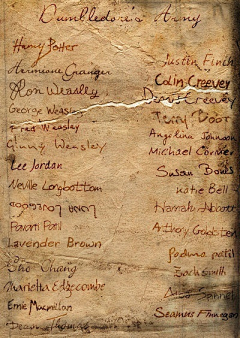 Dumbledore's Army
Harry Potter
Hermione Granger
Ron Weasley
George Weasley
Fred Weasley
Ginny Weasley
Lee Jordan
Neville Longbottom
Parvati Patil
Lavender Brown
Cho Chang
Marietta Edgecombe
Ernie Macmillan
Justin Finch
Colin Creevey
Dennis Creevey
Terry Boot
Angelina Johnson
Michael Corner
Susan Bones
Katie Bell
Hannah Abbott
Anthony Goldstein
Padma patil
Zach smith
Seamus Finnegan